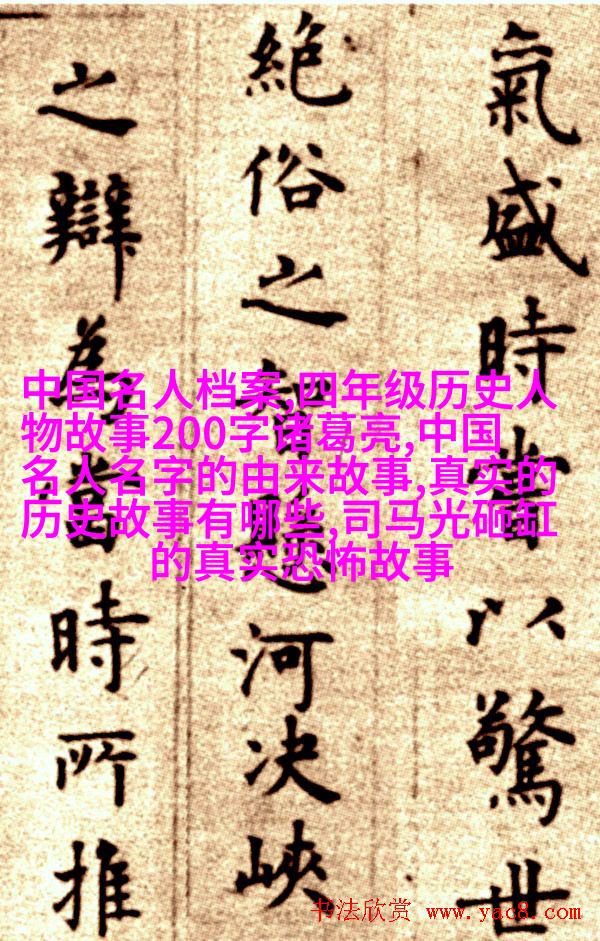 氣盛時嘗以驚世
絶俗之智懸河决峽
之辯為當時所推
中国名人档案,四年级历史人
物故事200字诸葛亮,中国
名人名字的由来故事,真实的
历史故事有哪些,司马光砸缸
的真实恐怖故事
书法欣赏 www.yac8.com